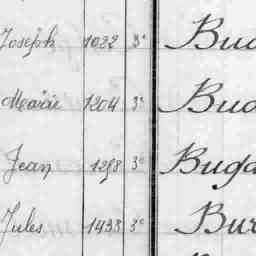 Joseph 1022 3e Bud
Marie 1204 3e Bud
Jean 1298 3e Buga
Jules 1498 3e Bur